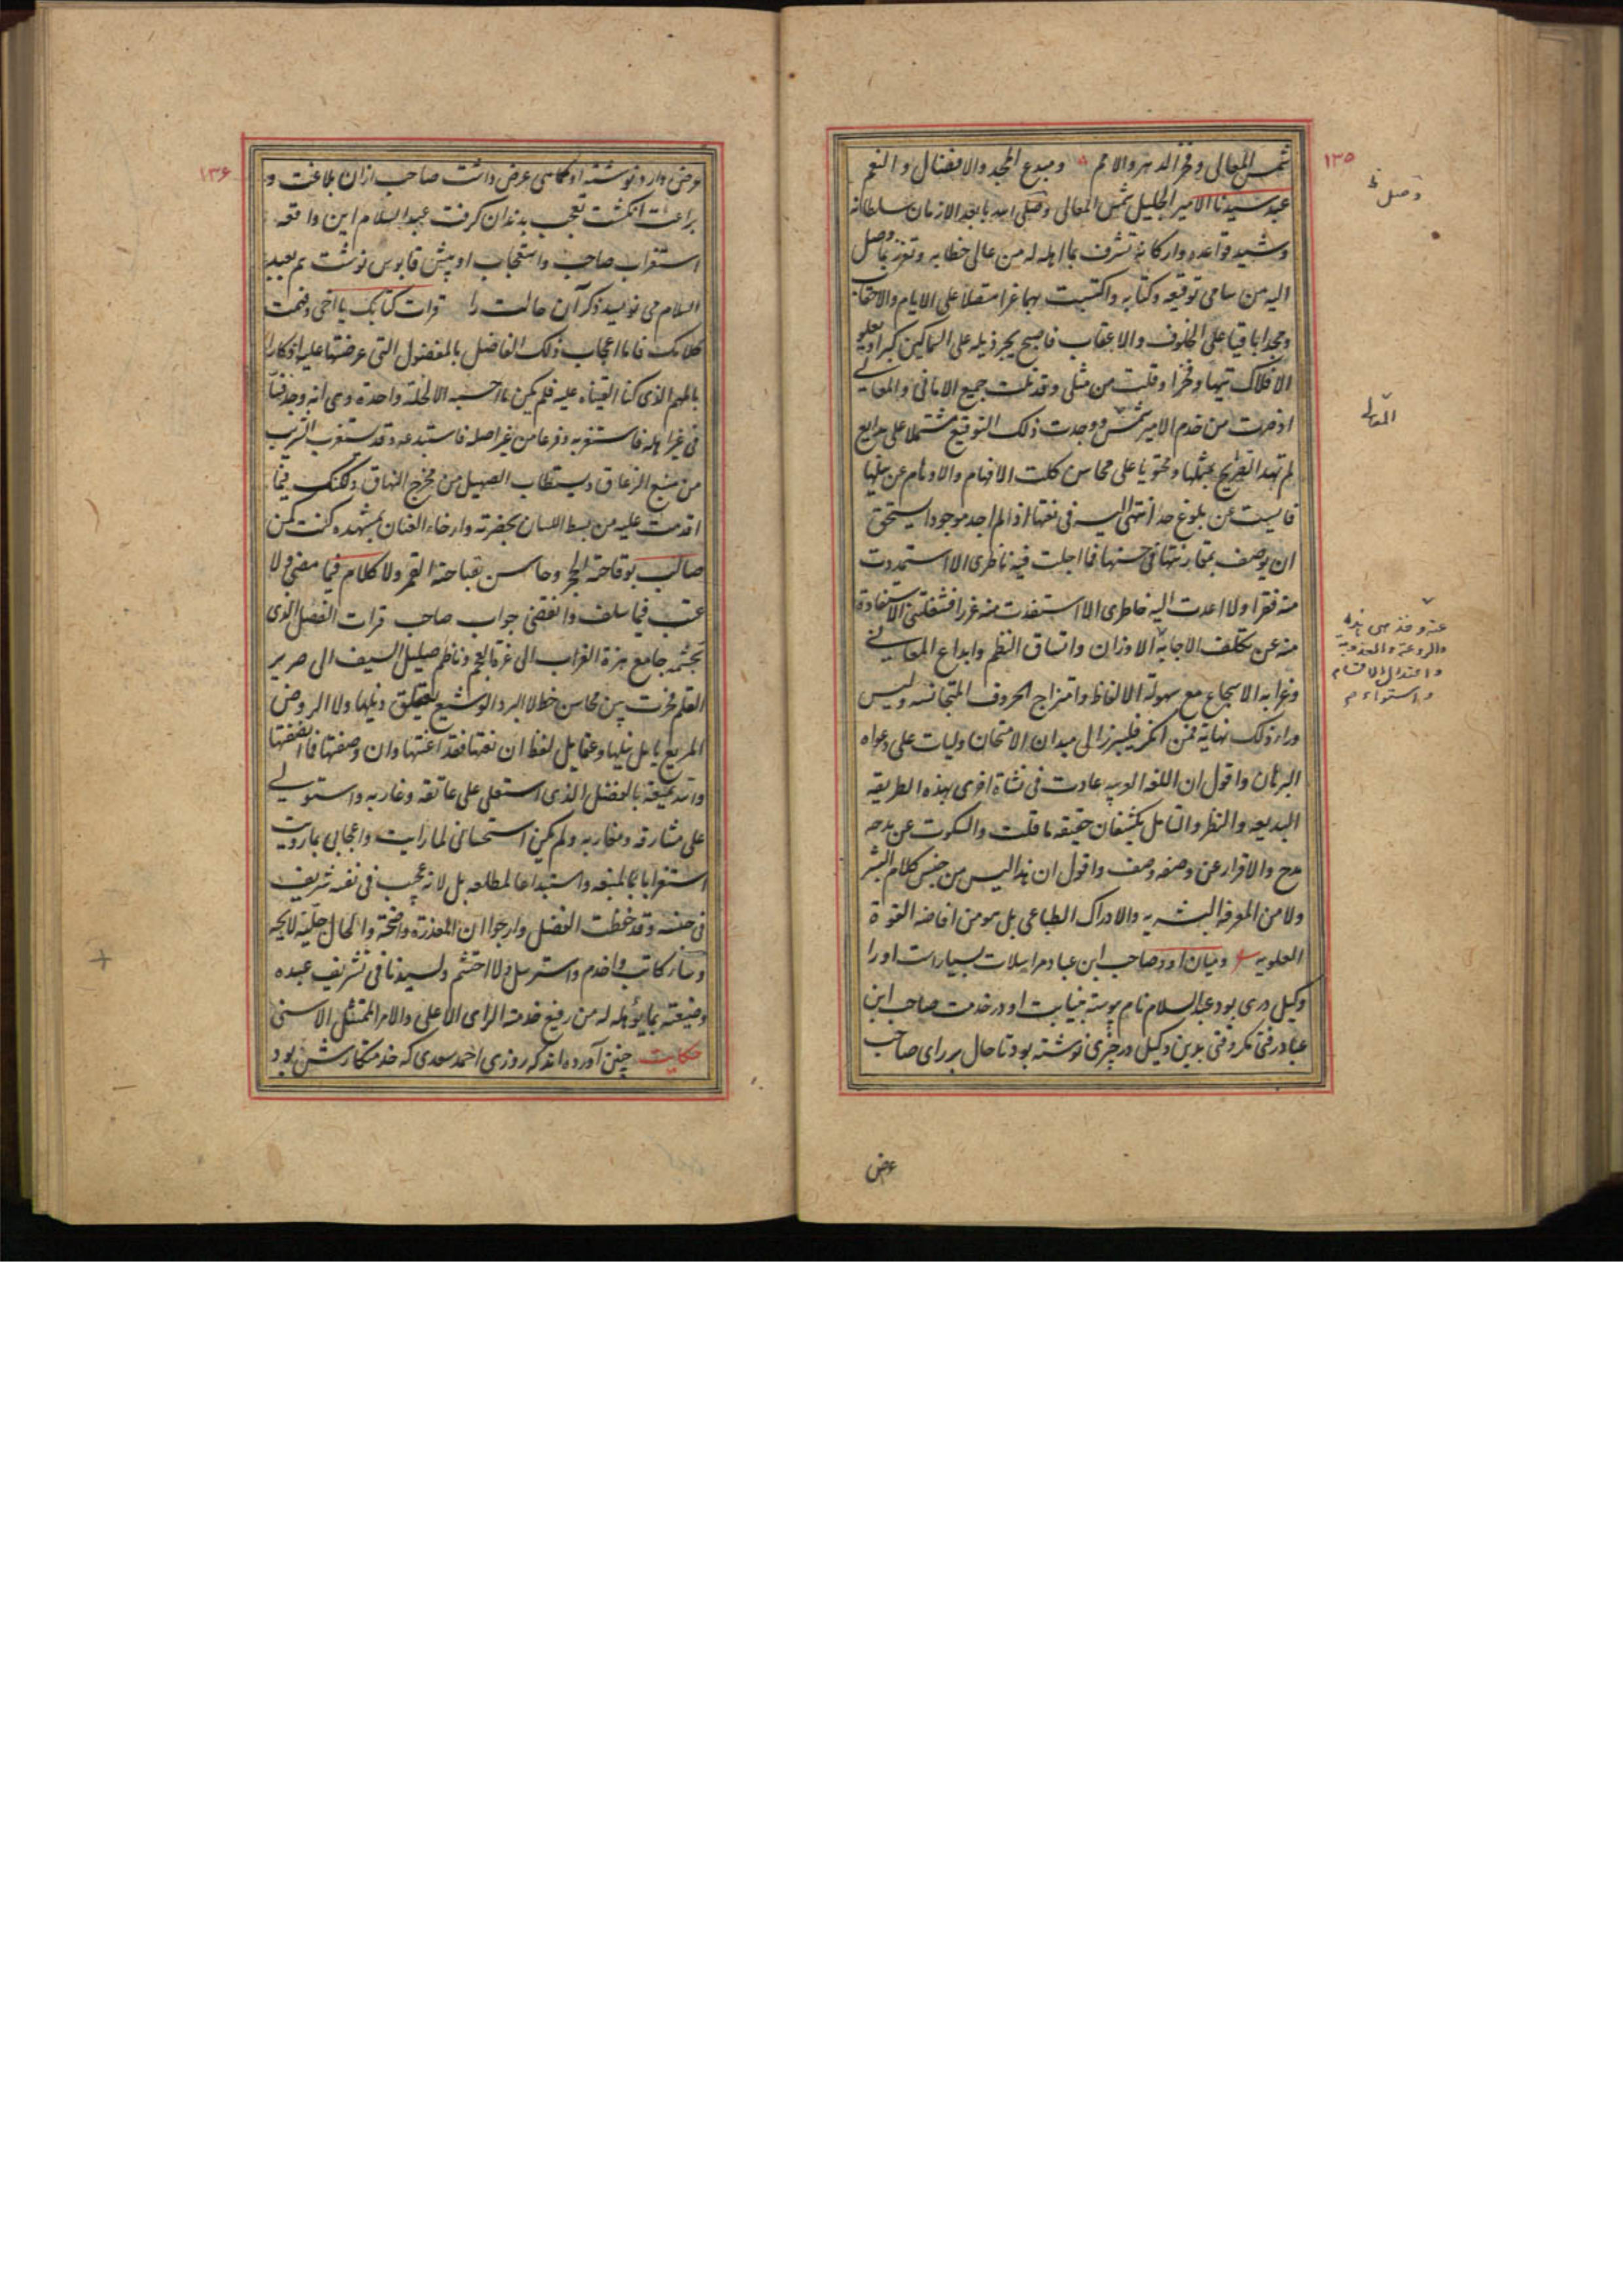 ۱۳۵
شمس المعالی وفخر الدهر والامم ومبدع المجد والافضال والنعم
عبد سیدنا الامیر الجلیل شمس المعالی وصلی
وشید قواعده وارکانه تشرف بما اهله له من عالی خطابه وتعزز بما وصل
الیه من سامی توقیعه وکتابه واکتسبت بهما عزا متصلا علی الایام والاحقاب
ومجدا باقیا علی الخلوف والاعقاب فاصبح یجر ذیله علی السماکین کبرا ویعلو
الافلاک تیها وفخرا وقلت من مثلی وقد نلت جمیع الامانی والمعالی
اذ صرت من خدم الامیر شمس ووجدت ذلک التوقیع مشتملا علی بدایع
لم تهتد القرایح بمثلها ومحتویا علی محاسن کلت الافهام والاوهام عن نیلها
فایست عن بلوغ حد انتهی الیه فی نعتها اذ لم اجد موجودا یستحق
ان یوصف بمقارنتها فی حسنها فما اجلت فیه ناظری الا استمددت
منه فقرا ولا اعدت الیه خاطری الا استفدت منه غررا فشغلتنی الاستفادة
منه عن تکلف الاجابة الاوزان واتساق النظم وابداع المعانی
وغرابه الاسجاع مع سهولة الالفاظ وامتزاج الحروف المتجانسه ولیس
وراء ذلک نهایة فمن انکر فلیبرز الی میدان الامتحان ولیات علی دعواه
البرهان واقول ان اللغه العربیه عادت فی نشاة اخری بهذه الطریقه
البدیعه والنظر والتامل یکشفان حقیقه ما قلت والسکوت عن مدحه
مدح والاقرار عن وصفه وصف واقول ان هذا لیس من جنس کلام البشر
ولا من المعرفه البشریه والادراک الطباعی بل هو من افاضه القوة
العلویه ومیان او وصاحب ابن عباد مراسلات بسیار است او را
وکیل دری بود عبد السلام نام پوسته بنیابت او در خدمت صاحب ابن
عباد رفتی مکر وقتی بدین وکیل در چیزی نوشته بود تا حال بر رای صاحب
عرض
وصل
المعالی
عنه وقد
والروعة والعذوبة
واعتدال الاقسام
واستواء
۱۳۶
عرض دارد نوشته او کماهی عرض داشت صاحب از آن بلاغت و
براعت انکشت تعجب بدندان کرفت عبد السلام این واقعه
استغراب صاحب واستعجاب او پیش قابوس نوشت بعبد
السلام می نویسد ذکر آن حالت را قرات کتابک یا اخی وفهمت
کلامک فاما اعجاب ذلک الفاضل بالفصول التی عرضتها علیه
بالمهم الذی کنا القیناه علیه فلم یکن ما احسبه الا لخلة واحدة وهی انه وجد فنا
فی غیر اهله فاستغربه وفرعا من غیر اصله فاستبدعه وقد یستعذب الشرب
من منبع الزعاق ویستطاب الصهیل من مخرج النهاق ولکنک فیما
اقدمت علیه من بسط اللسان بحضرته وارخاء العنان بمشهده کنت کمن
صالب بوقاحته الحجر وحاسن بقباحته القمر ولا کلام فیما مضی ولا
عتب فیما سلف وانقضی جواب صاحب قرات الفصل الذی
تجشمه جامع هزة العرب الی عزة العجم وناظم صلیل السیف الی صریر
القلم فحرت بین محاسن خط لا البرد الوشیع یتعلق ذیلها ولا الروض
المریع یامل نیلها وعقایل لفظ ان نعتها فقد اعبتها وان وصفتها فما انصفتها
بالفضل الذی استعلی علی عاتقه وغاربه واستولی
علی مشارقه ومغاربه ولم یکن استحسانی لما رایت واعجابی بما رویت
استغرابا لمنبعه واستبداعا لمطلعه بل لانه عجب فی نفسه شریف
فی جنسه وقد حفظت الفصل وارجو ان المعذرة واضحة والحال جلیة لایحه
کاتب واخدم واسترسل ولا احتشم ولسیدنا فی تشریف عبده
وصنیعته بما یؤهله له من رفیع خدمة الرای الاعلی والامر الممتثل الاسنی
حکایت چنین آورده اند که روزی احمد سعدی که خدمتکارش بود